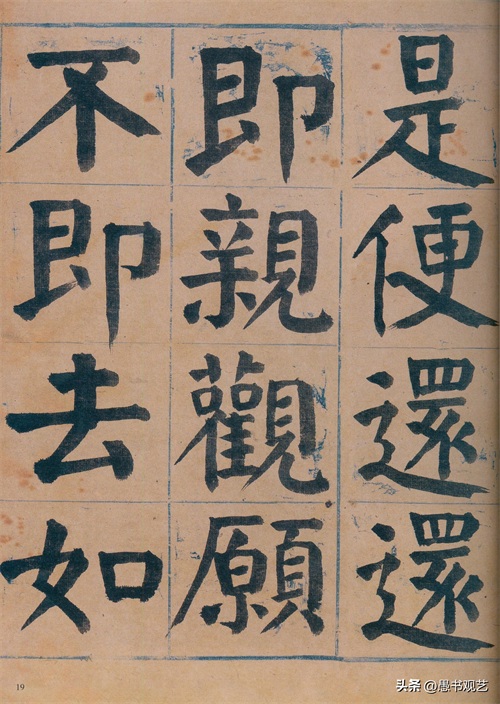 是便還還
即親觀願
不即去如
19
头条@愚书观艺